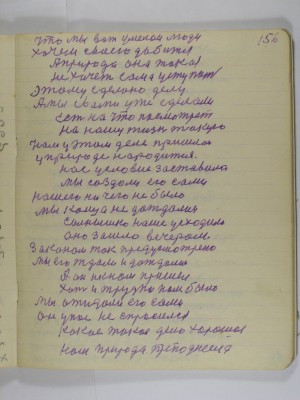 156
что мы вот умелой люди
хочем своего добится
А природа она тожа
не хочет сама уступат
Этому сделоно делу
А мы сваими уже сделали
Ест на что посмотрет
на нашу тизн такую
Нам у этом деле пришлос
у природе народится.
нас условие заставила
мы создоли его сами
нашего ни чего не было
Мы конца не дождалис
Солнышко наше уходило
оно зашло вечером
Законом так предусмотрено
Мы его ждали и дождалис
А он к нам пришел
Хоть и трудно нам было
Мы ожидали его сами
Он у нас не спросился
Какое такое дело хорошое
нам природа преподнесет